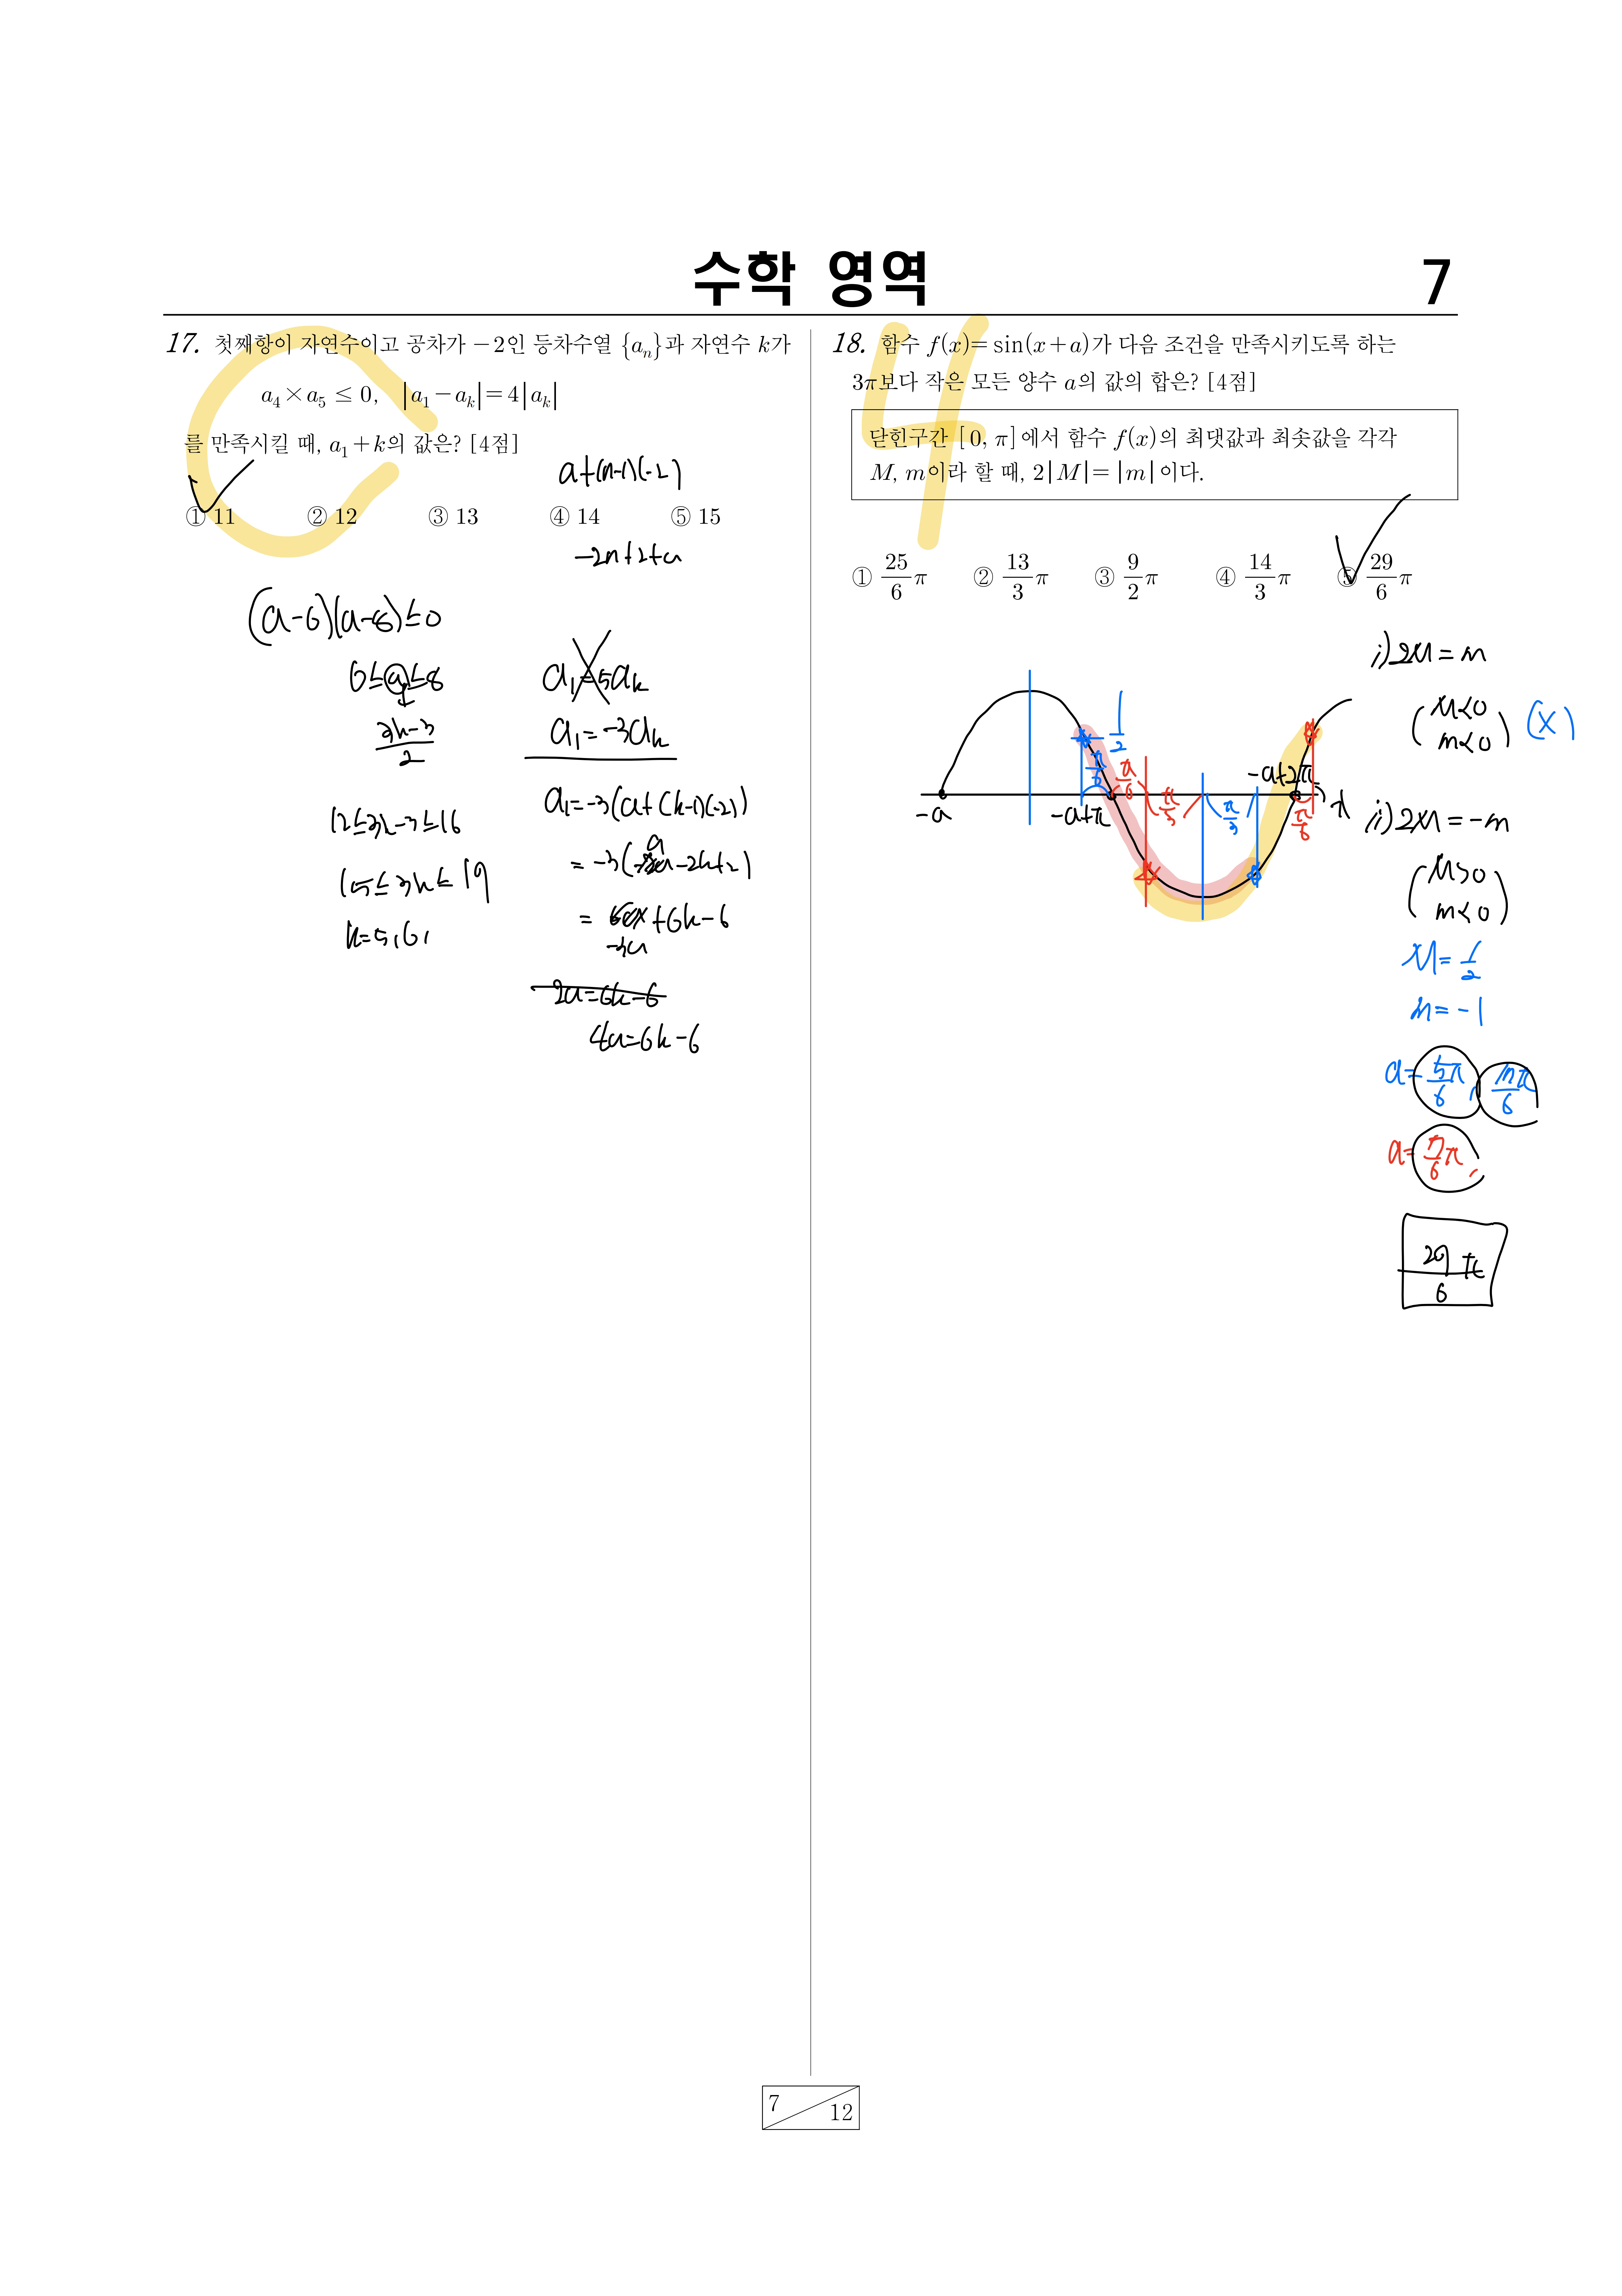 수학 영역
7
17. 첫째항이 자연수이고 공차가 −2인 등차수열 {aₙ}과 자연수 k가
a₄×a₅ ≤ 0, |a₁−aₖ|=4|aₖ|
를 만족시킬 때, a₁+k의 값은? [4점]
① 11 ② 12 ③ 13 ④ 14 ⑤ 15
a+(n-1)(-2)
-2n+2+a
(a-6)(a-8)≤0
6≤a≤8
3k-3
2
12≤3k-3≤16
15≤3k≤19
k=5,6,
a₁=5aₖ
a₁=-3aₖ
a₁=-3(a+(k-1)(-2))
=-3(a-2k+2)
=-3a+6k-6
2a=6k-6
4a=6k-6
4
18. 함수 f(x)=sin(x+a)가 다음 조건을 만족시키도록 하는
3π보다 작은 모든 양수 a의 값의 합은? [4점]
닫힌구간 [0, π]에서 함수 f(x)의 최댓값과 최솟값을 각각
M, m이라 할 때, 2|M|=|m|이다.
① 25/6 π ② 13/3 π ③ 9/2 π ④ 14/3 π ⑤ 29/6 π
1/2
π/6
π/6
π/3
π/3
π/6
-a
-a+π
-a+2π
x
i) 2M=m
(M<0
m<0) (X)
ii) 2M=-m
(M>0
m<0)
M=1/2
m=-1
a=5π/6, 17π/6
a=7/6 π,
29/6 π
7
12